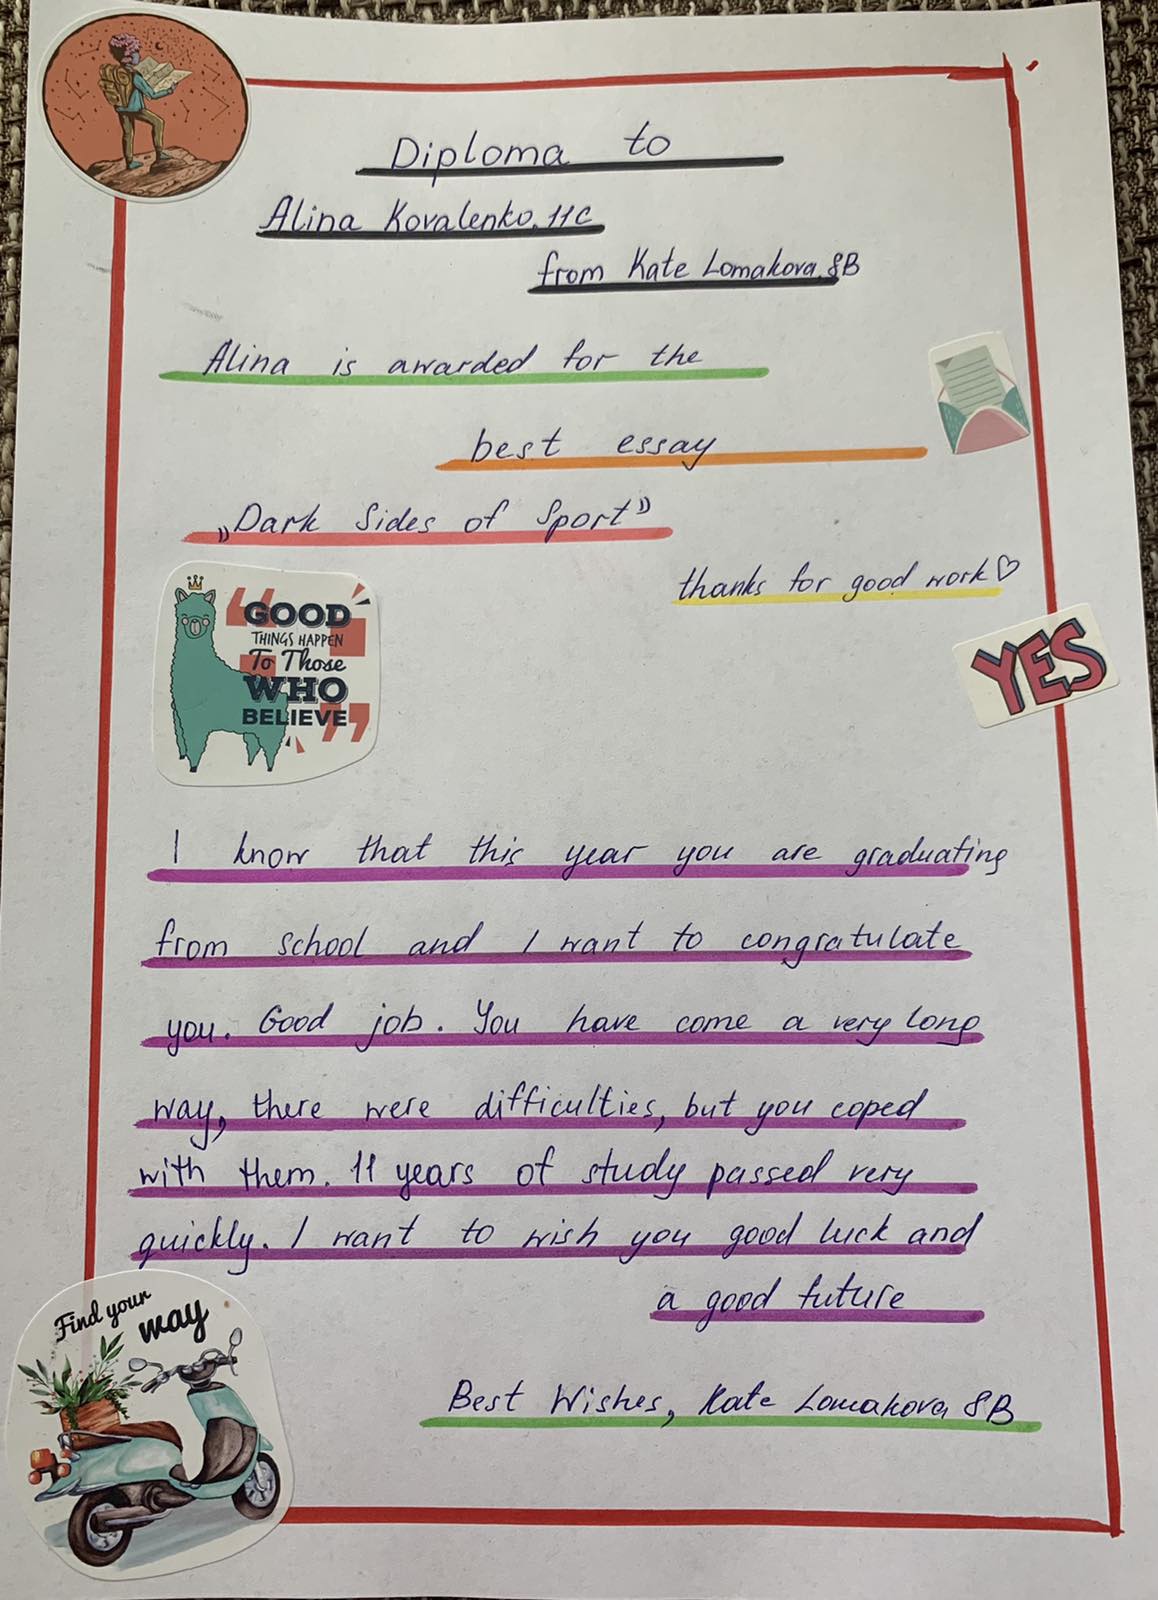 Diploma to
Alina Kovalenko, 11C
from Kate Lomakova, 8B
Alina is awarded for the
best essay
„Dark Sides of Sport”
thanks for good work♡
GOOD
THINGS HAPPEN
To Those
WHO
BELIEVE
YES
I know that this year you are graduating
from school and I want to congratulate
you. Good job. You have come a very long
way, there were difficulties, but you coped
with them. 11 years of study passed very
quickly. I want to wish you good luck and
a good future
Find your
way
Best Wishes, Kate Lomakova 8B